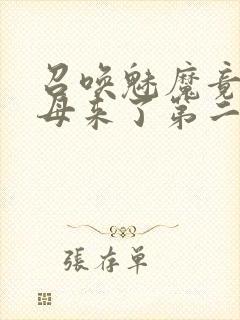 召唤魅魔竟
母来了第二
張存单